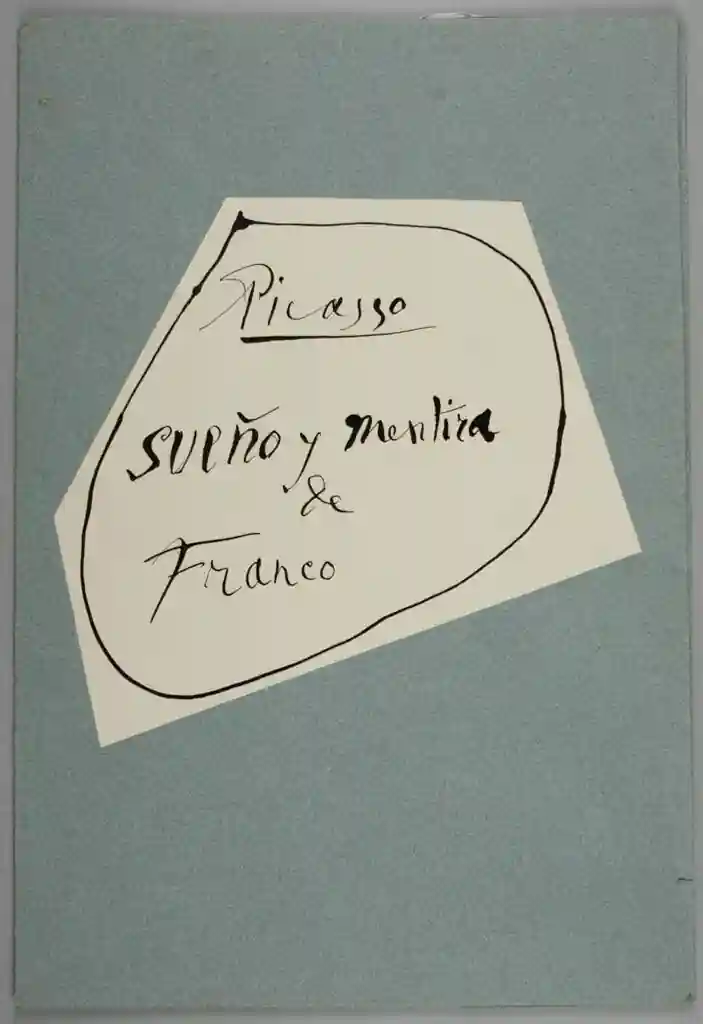 Picasso
SUEÑO y mentira
de
Franco